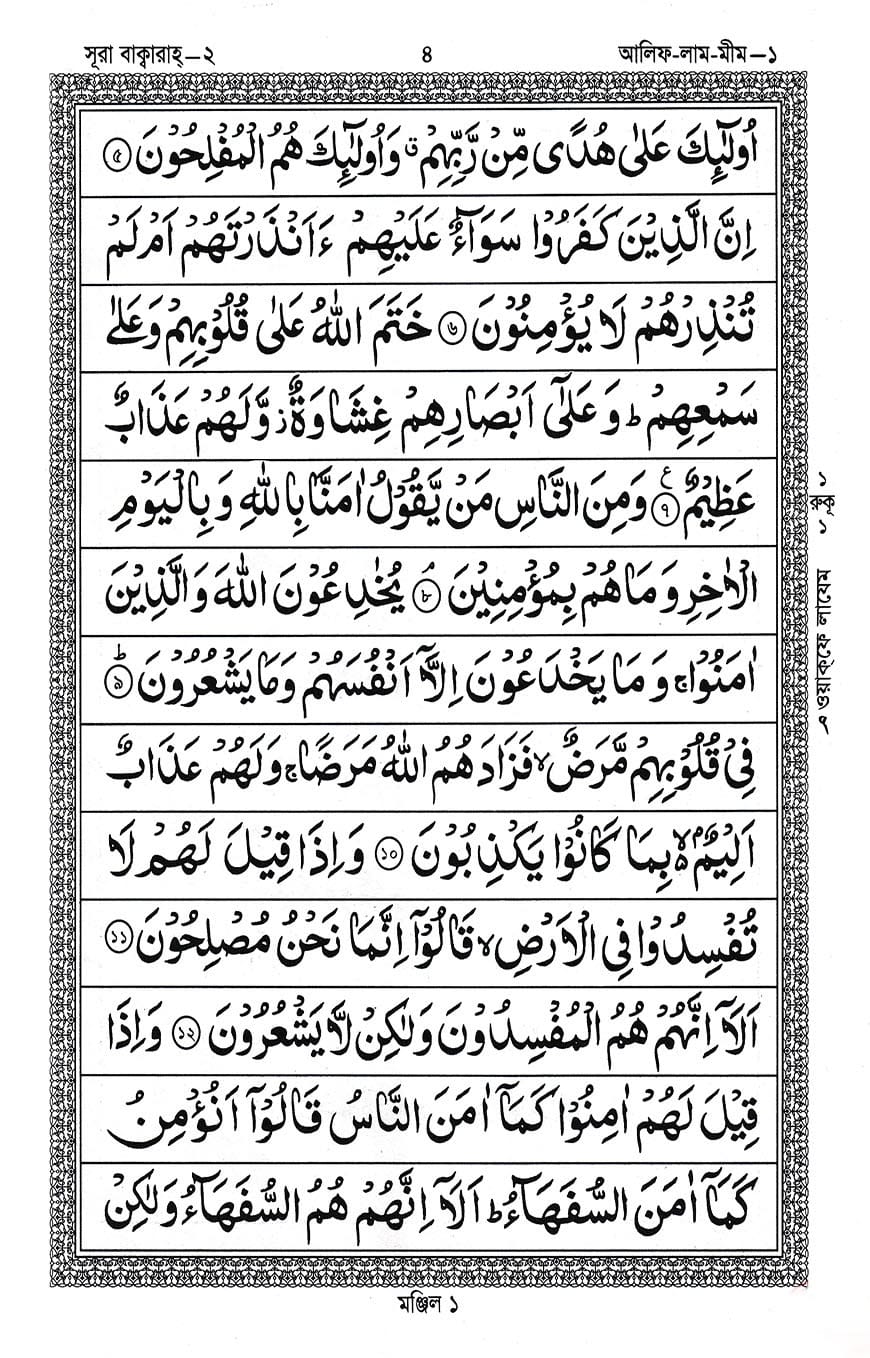 সূরা বাক্বারাহ্–২
৪
আলিফ-লাম-মীম–১
اُولٰٓئِكَ عَلٰى هُدًى مِّنْ رَّبِّهِمْ ۗ وَاُولٰٓئِكَ هُمُ الْمُفْلِحُوْنَ ৫
اِنَّ الَّذِيْنَ كَفَرُوْا سَوَآءٌ عَلَيْهِمْ ءَاَنْذَرْتَهُمْ اَمْ لَمْ
تُنْذِرْهُمْ لَا يُؤْمِنُوْنَ ৬ خَتَمَ اللّٰهُ عَلٰى قُلُوْبِهِمْ وَعَلٰى
سَمْعِهِمْ ؕ وَعَلٰٓى اَبْصَارِهِمْ غِشَاوَةٌ ز وَّلَهُمْ عَذَابٌ
عَظِيْمٌ ৭ ع وَمِنَ النَّاسِ مَنْ يَّقُوْلُ اٰمَنَّا بِاللّٰهِ وَبِالْيَوْمِ
الْاٰخِرِ وَمَا هُمْ بِمُؤْمِنِيْنَ ৮ ۘ يُخٰدِعُوْنَ اللّٰهَ وَالَّذِيْنَ
اٰمَنُوْا ج وَمَا يَخْدَعُوْنَ اِلَّآ اَنْفُسَهُمْ وَمَا يَشْعُرُوْنَ ৯ ؕ
فِيْ قُلُوْبِهِمْ مَّرَضٌ ۙ فَزَادَهُمُ اللّٰهُ مَرَضًا ج وَلَهُمْ عَذَابٌ
اَلِيْمٌۢ ۙ بِمَا كَانُوْا يَكْذِبُوْنَ ১০ وَاِذَا قِيْلَ لَهُمْ لَا
تُفْسِدُوْا فِى الْاَرْضِ ۙ قَالُوْٓا اِنَّمَا نَحْنُ مُصْلِحُوْنَ ১১
اَلَآ اِنَّهُمْ هُمُ الْمُفْسِدُوْنَ وَلٰكِنْ لَّا يَشْعُرُوْنَ ১২ وَاِذَا
قِيْلَ لَهُمْ اٰمِنُوْا كَمَآ اٰمَنَ النَّاسُ قَالُوْٓا اَنُؤْمِنُ
كَمَآ اٰمَنَ السُّفَهَآءُ ؕ اَلَآ اِنَّهُمْ هُمُ السُّفَهَآءُ وَلٰكِنْ
রুকূ ১
ওয়াক্ফে লাযেম
মঞ্জিল ১